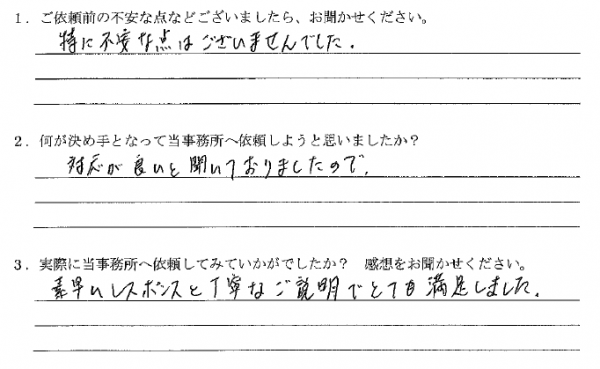 1．ご依頼前の不安な点などございましたら、お聞かせください。
特に不安な点はございませんでした.
2．何が決め手となって当事務所へ依頼しようと思いましたか？
対応が良いと聞いておりましたので.
3．実際に当事務所へ依頼してみていかがでしたか？　感想をお聞かせください。
素早いレスポンスと丁寧なご説明でとても満足しました.